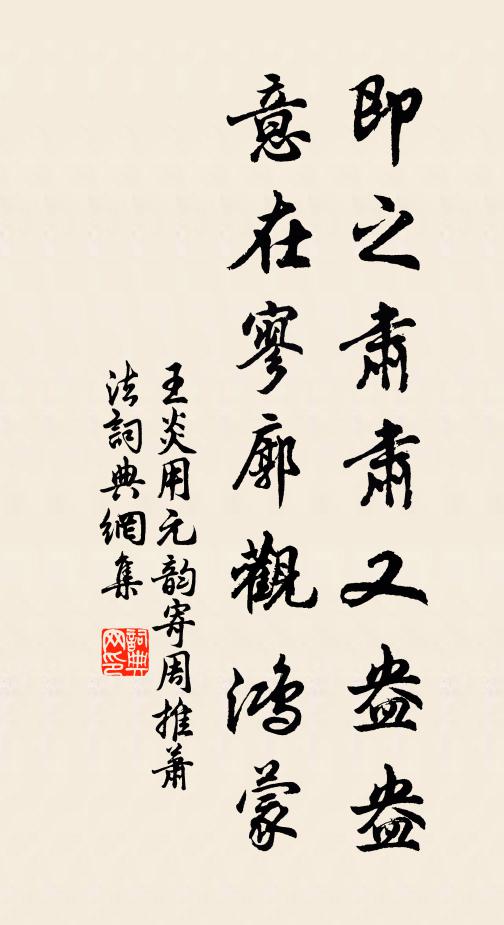 即之肅肅又盎盎
意在寥廓觀鴻蒙
王炎用元韵寄周推蕭
法詞典網集
詞典网印